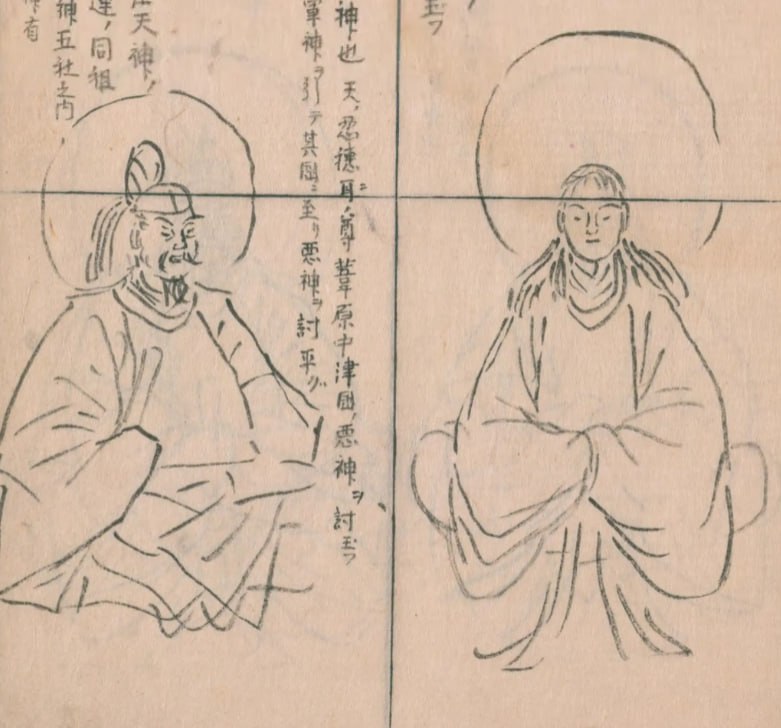 玉フ
神也 天ノ忍穂耳ノ尊葦原中津国ノ悪神ヲ討玉フ
軍神ヲ引テ其国ニ至リ悪神ヲ討平グ
天神ノ
連ノ同祖
神五社之内
有